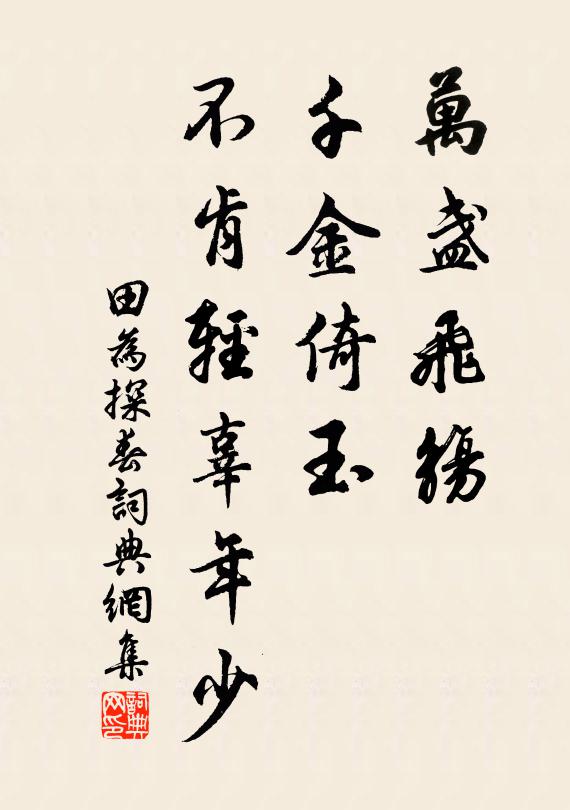 萬盞飛觴
千金倚玉
不肯輕辜年少
田為探春詞典網集
詞典網印